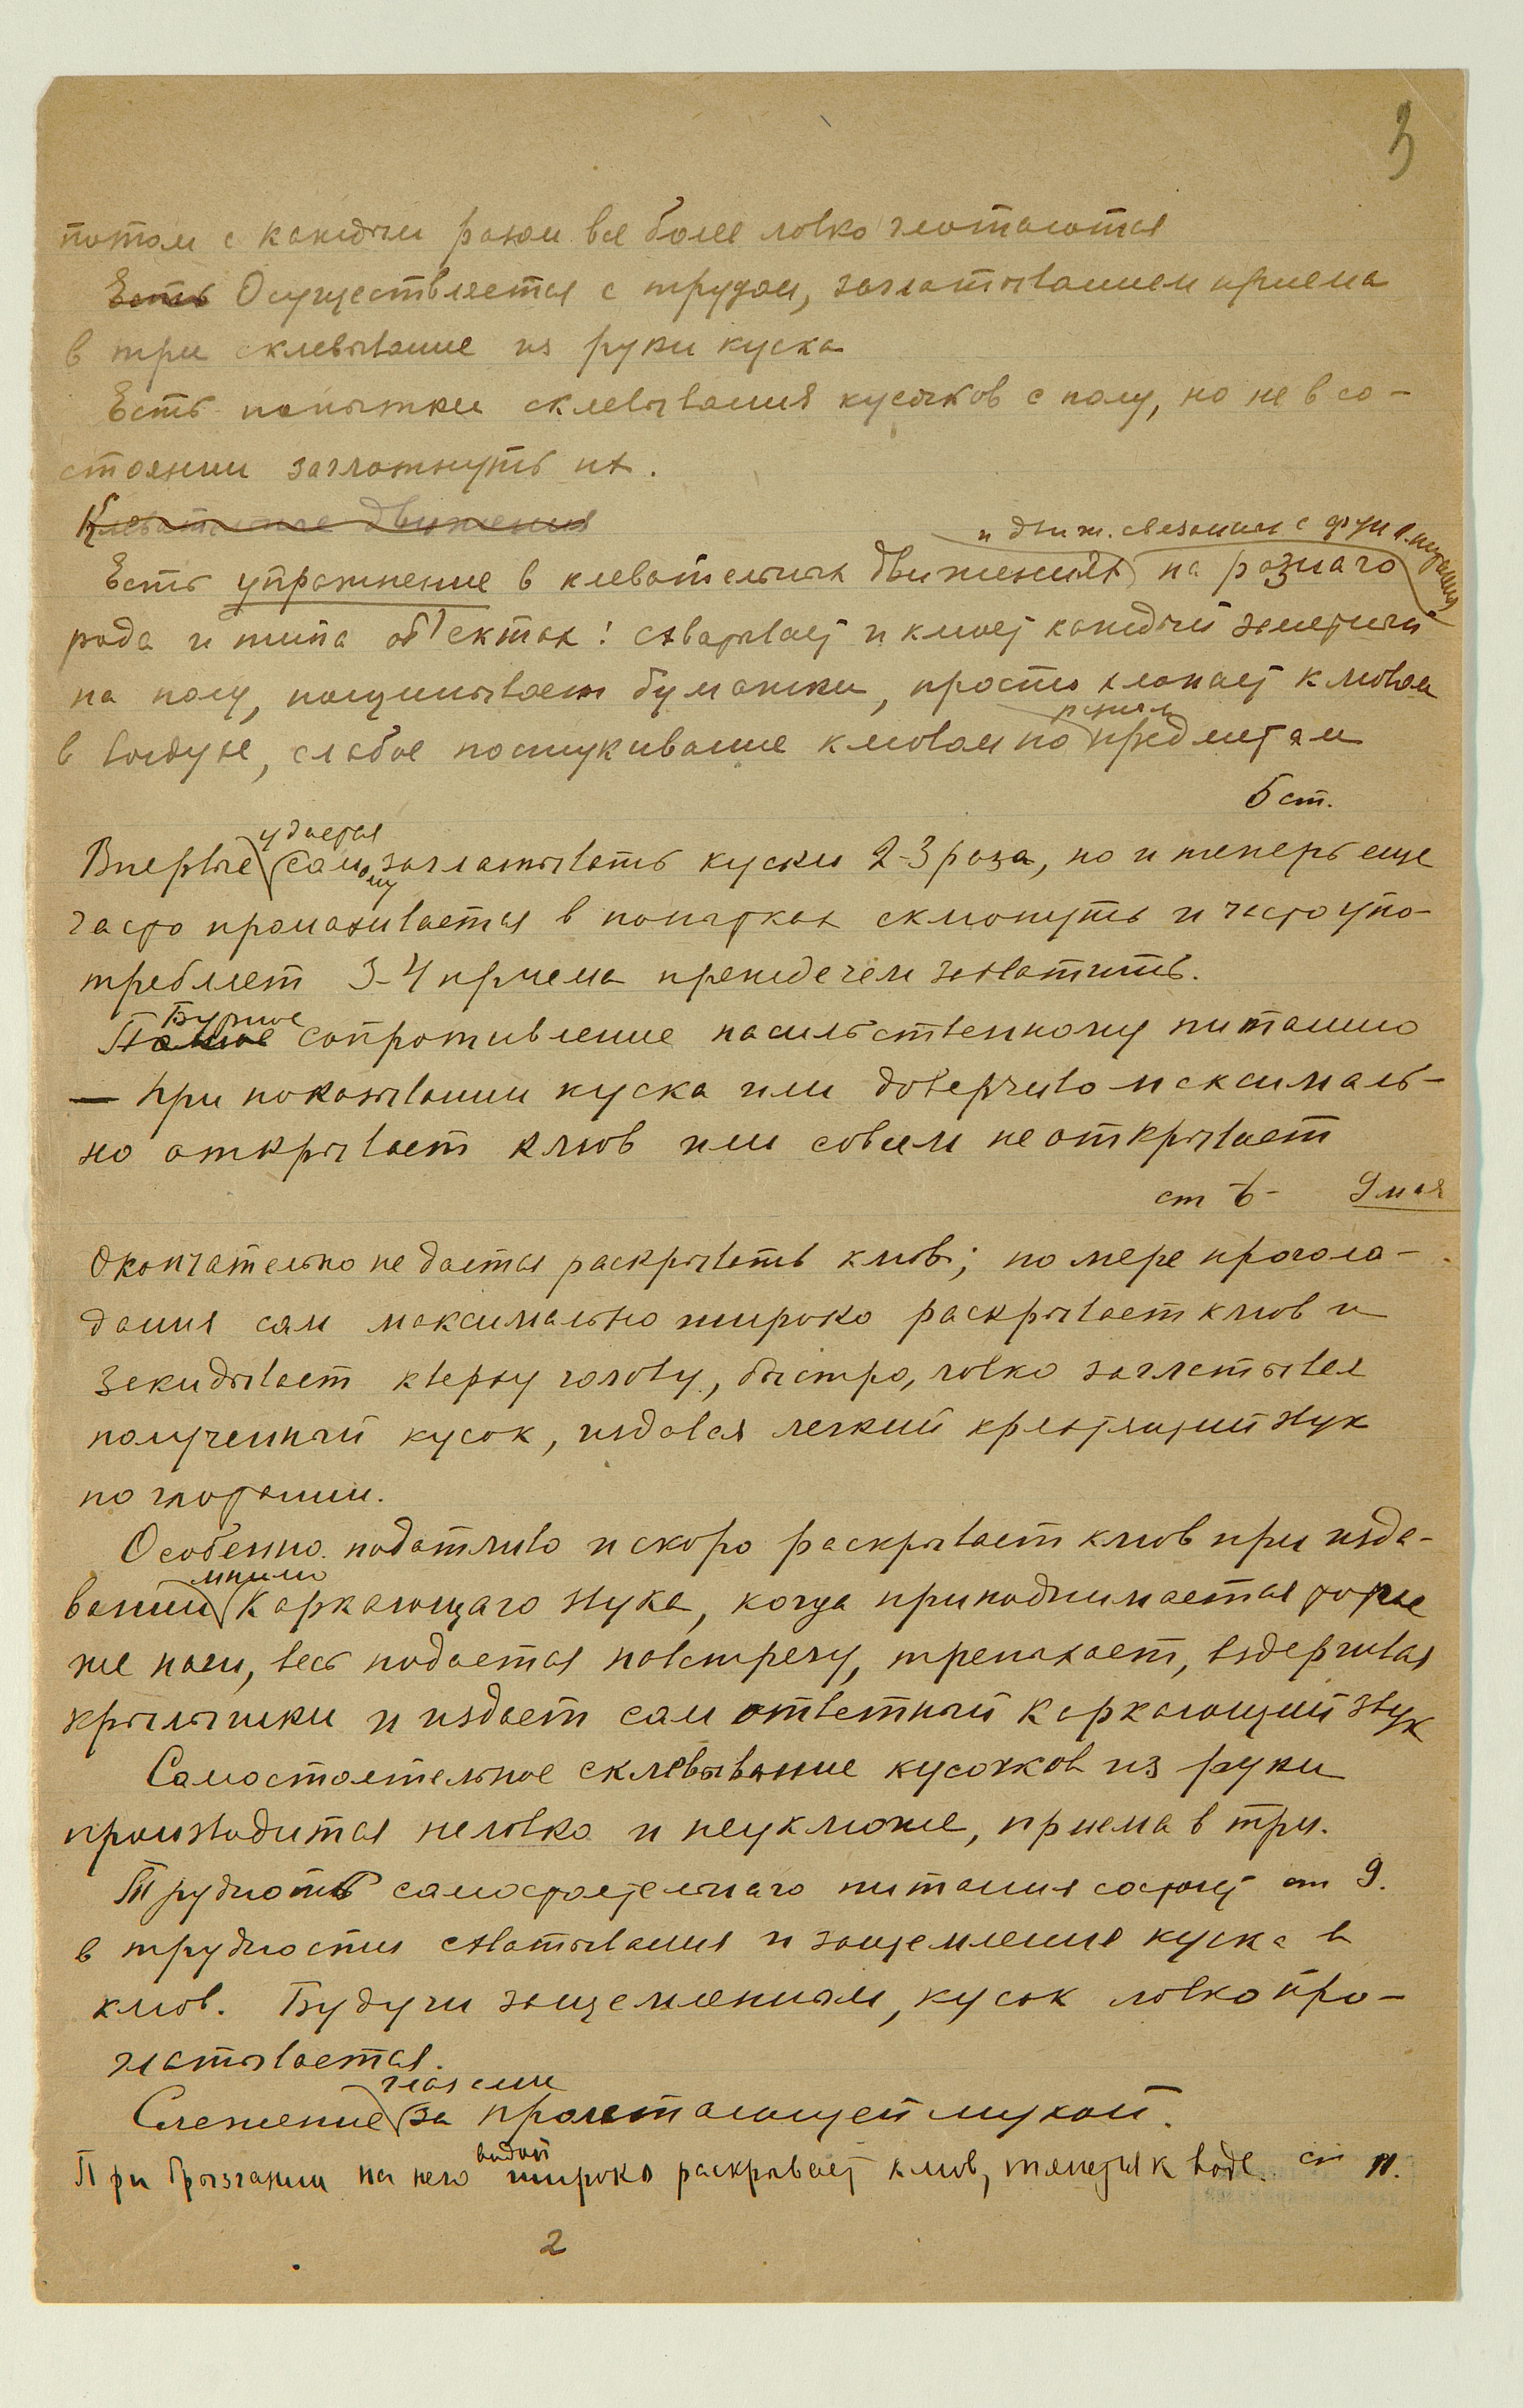 3
потом с каждым разом все более ловко глотаются
Есть Осуществляется с трудом, заглатыванием приема
в три склевывание из руки куска
Есть попытки склевывания кусочков с полу, но не в со-
стоянии заглотнуть их.
Клевательные движения
и движ. связанным с функ. питания
Есть упражнение в клевательных движениях на разнаго
рода и типа об'ектах: схватывает и клюет каждый
на полу, пощипывает бумажки, просто хлопает клювом
в воздухе, слабое постукивание клювом по предметам
разным
5 ст.
удается
Впервые самому заглатывать куски 2-3 раза, но и теперь еще
часто промахивается в попытках склюнуть и часто упо-
требляет 3-4 приема прежде чем захватить.
Бурное
Полное сопротивление насильственному питанию
— При показывании куска или доверчиво максималь-
но открывает клюв или совсем не открывает
ст 6- 9 мая
Окончательно не дается раскрывать клюв; по мере прогола-
дания сам максимально широко раскрывает клюв и
закидывает кверху голову, быстро, ловко заглатывая
полученный кусок, издавая легкий кряхтящий звук
по глотании.
Особенно податливо и скоро раскрывает клюв при изда-
вании каркающаго звука, когда приподнимается
же нам, весь подается навстречу, трепыхает, вздергивая
крылышки и издает сам ответный каркающий звук
Самостоятельное склевывание кусочков из руки
производится неловко и неуклюже, приема в три.
Трудность самостоятельнаго питания состоит ст 9.
в трудности схватывания и защемления куска в
клюв. Будучи защемленным, кусок ловко про-
глатывается.
глазами
Слежение за пролетающей мухой.
водой
При брызгании на него широко раскрывает клюв, тянется к воде. ст 11.
2